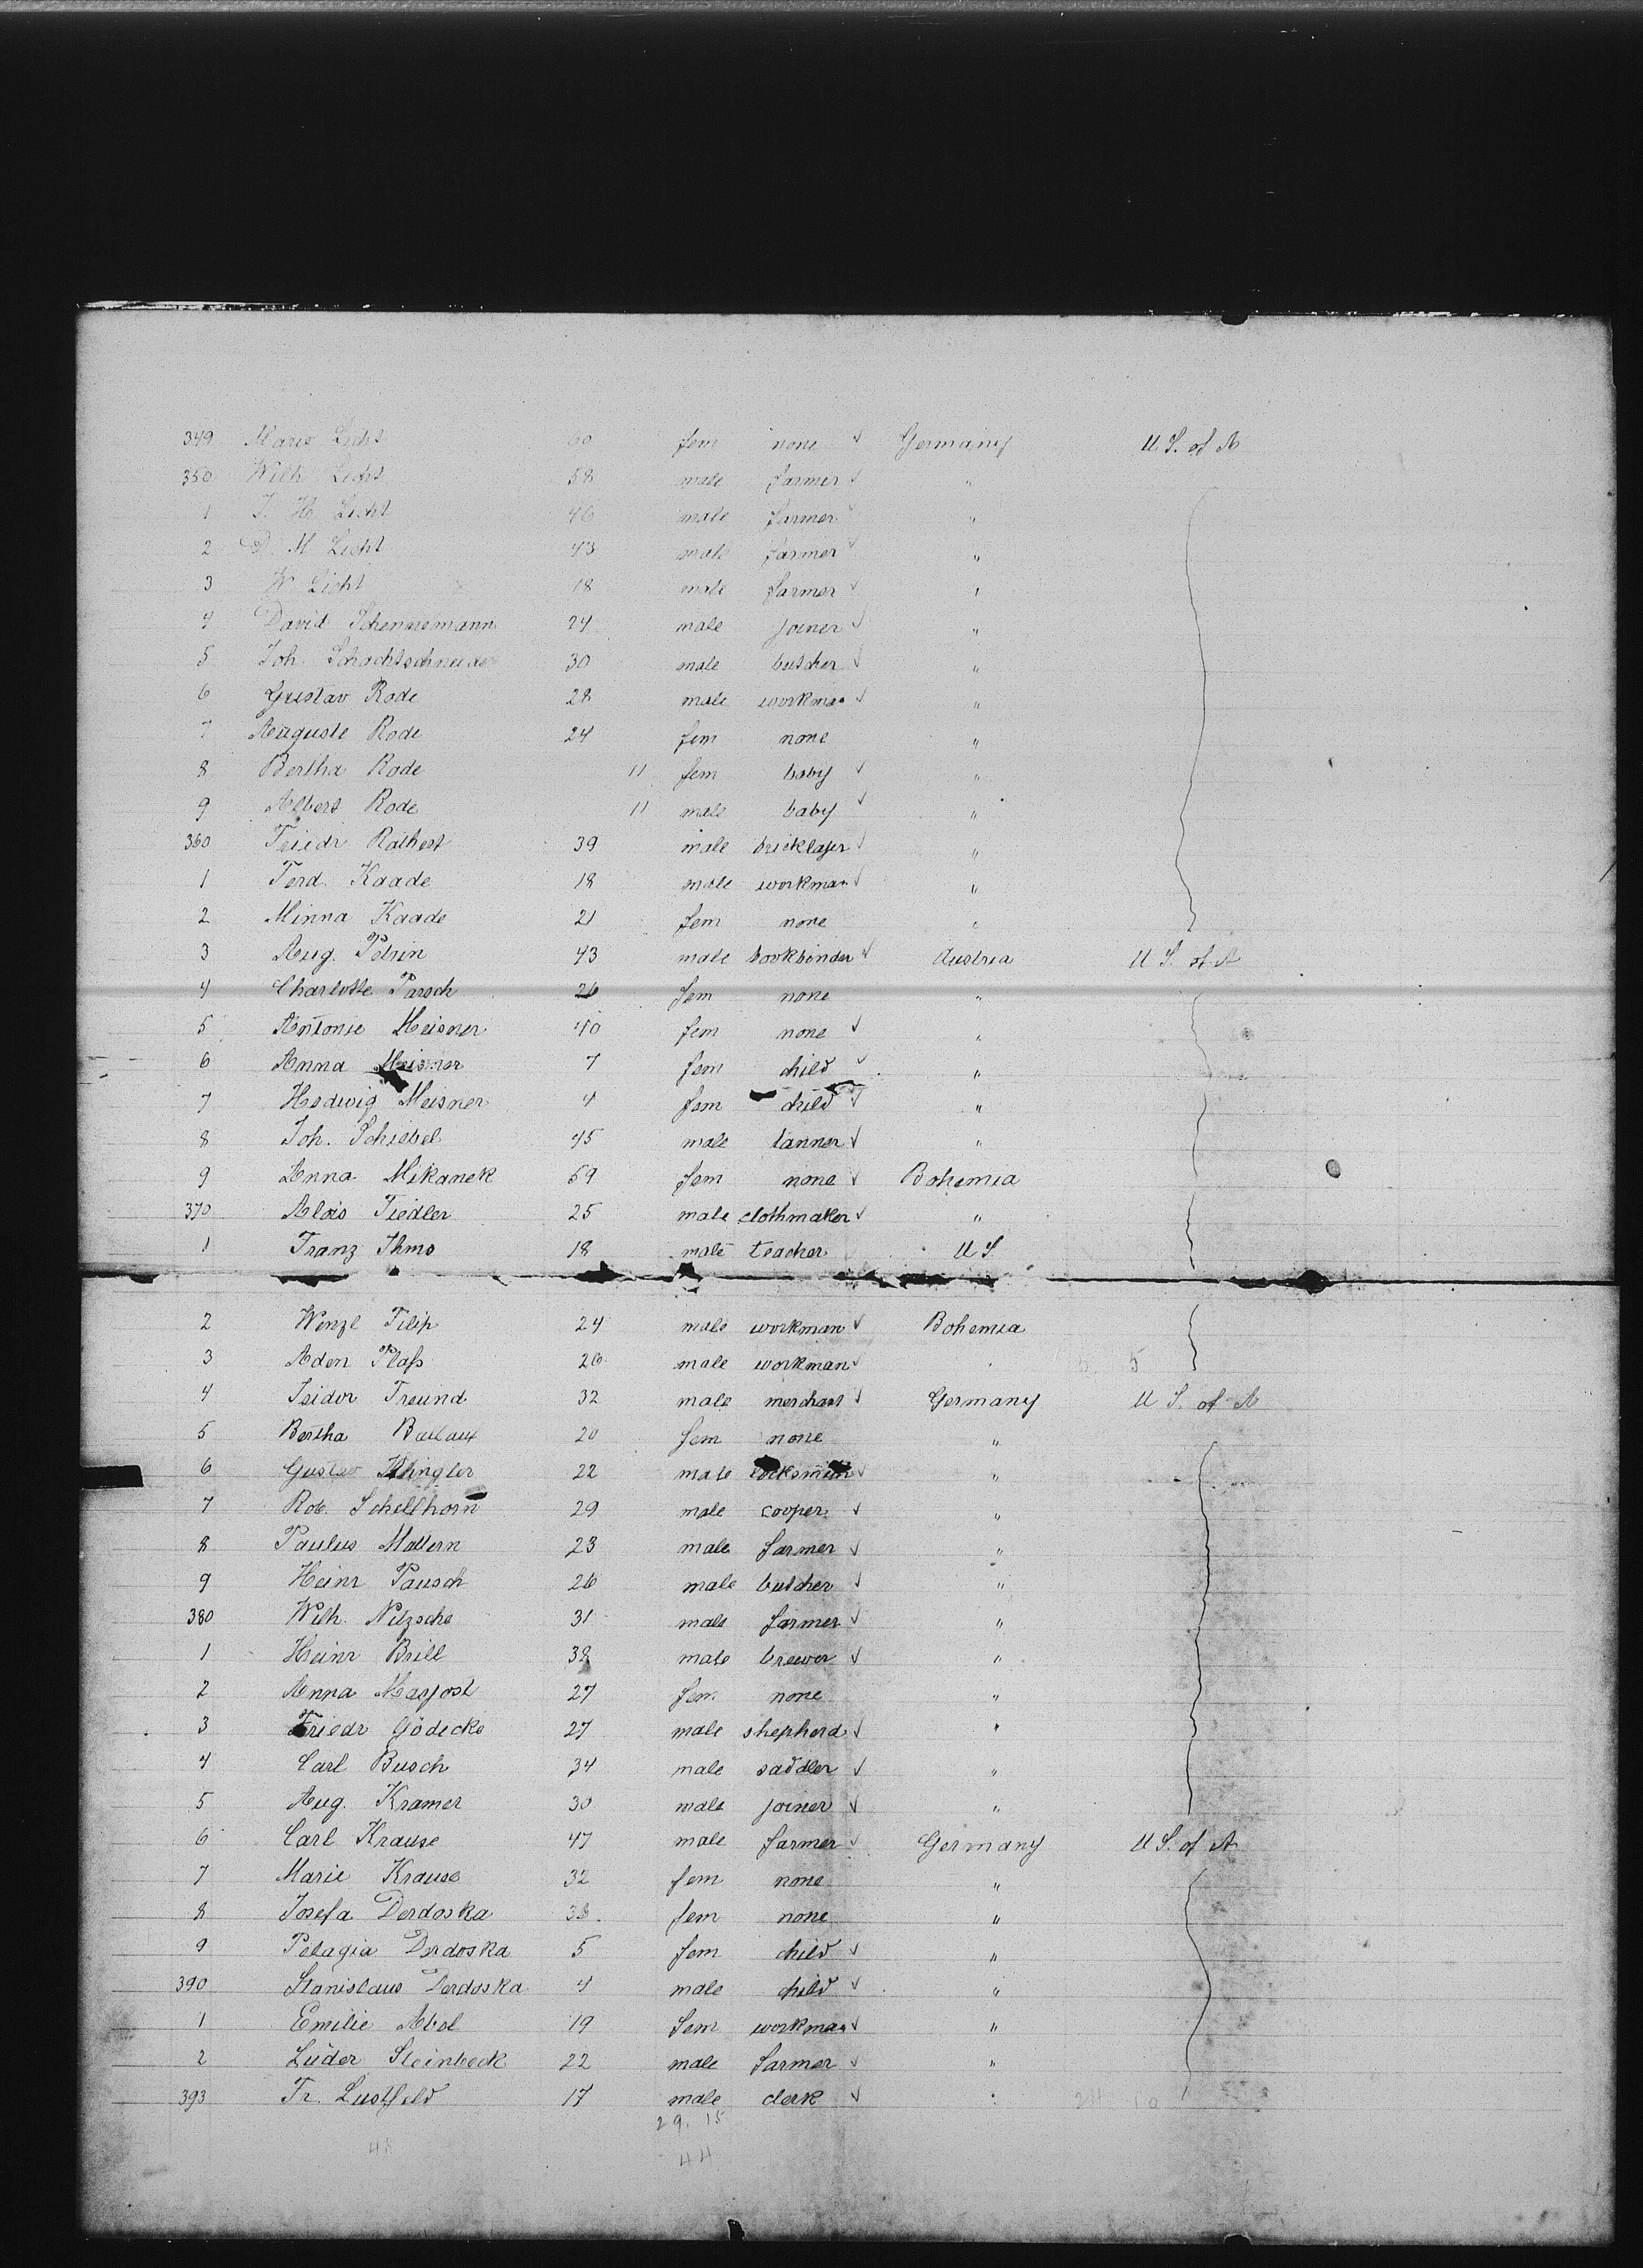 349 Marie Licht 60 fem none √ Germany U S. of A
350 Wilh Licht 58 male farmer √ "
1 J. H. Licht 46 male farmer √ "
2 D. M Licht 43 male farmer √ "
3 W Licht 18 male farmer √ "
4 David Schennemann 24 male joiner √ "
5 Joh. Schachtschneider 30 male butcher √ "
6 Gustav Rode 28 male workman √ "
7 Auguste Rode 24 fem none "
8 Bertha Rode 11 fem baby √ "
9 Albert Rode 11 male baby √ "
360 Friedr 39 male bricklayer √ "
1 Ferd. Kaade 18 male workman √ "
2 Minna Kaade 21 fem none "
3 Aug. Petrin 43 male bookbinder √ Austria U S. of A
4 Charlotte Parsch 26 fem none "
5 Antonie Meisner 40 fem none √ "
6 Anna Meisner 7 fem child √ "
7 Hedwig Meisner 4 fem child √ "
8 Joh. Schiebel 45 male tanner √ "
9 Anna Mikanek 59 fem none √ Bohemia
370 Alois Fiedler 25 male clothmaker √ "
1 Franz Thmo 18 male teacher U S.
2 Wenzl Filip 24 male workman √ Bohemia
3 Aden Plaſs 26 male workman √ " 5
4 Isidor Freund 32 male merchant √ Germany U S. of A
5 Bertha 20 fem none "
6 Gustav Klingler 22 male locksmith √ "
7 Rob. Schellhorn 29 male cooper √ "
8 Paulus Mattern 23 male farmer √ "
9 Heinr Pausch 26 male butcher √ "
380 Wilh. Nitzsche 31 male farmer √ "
1 Heinr Brill 38 male brewer √ "
2 Anna Masjost 27 fem. none "
3 Friedr Gödecke 27 male shepherd √ "
4 Carl Busch 34 male saddler √ "
5 Aug. Kramer 30 male joiner √ "
6 Carl Krause 47 male farmer √ Germany U S. of A
7 Marie Krause 32 fem none "
8 Josefa Derdoska 38 fem none "
9 Pelagia Derdoska 5 fem child √ "
390 Stanislaus Derdoska 4 male child √ "
1 Emilie Abel 19 fem workman √ "
2 Lüder Steinbeck 22 male farmer √ "
393 Fr. Lustfeld 17 male clerk √ " 24 10
29. 15
48 44